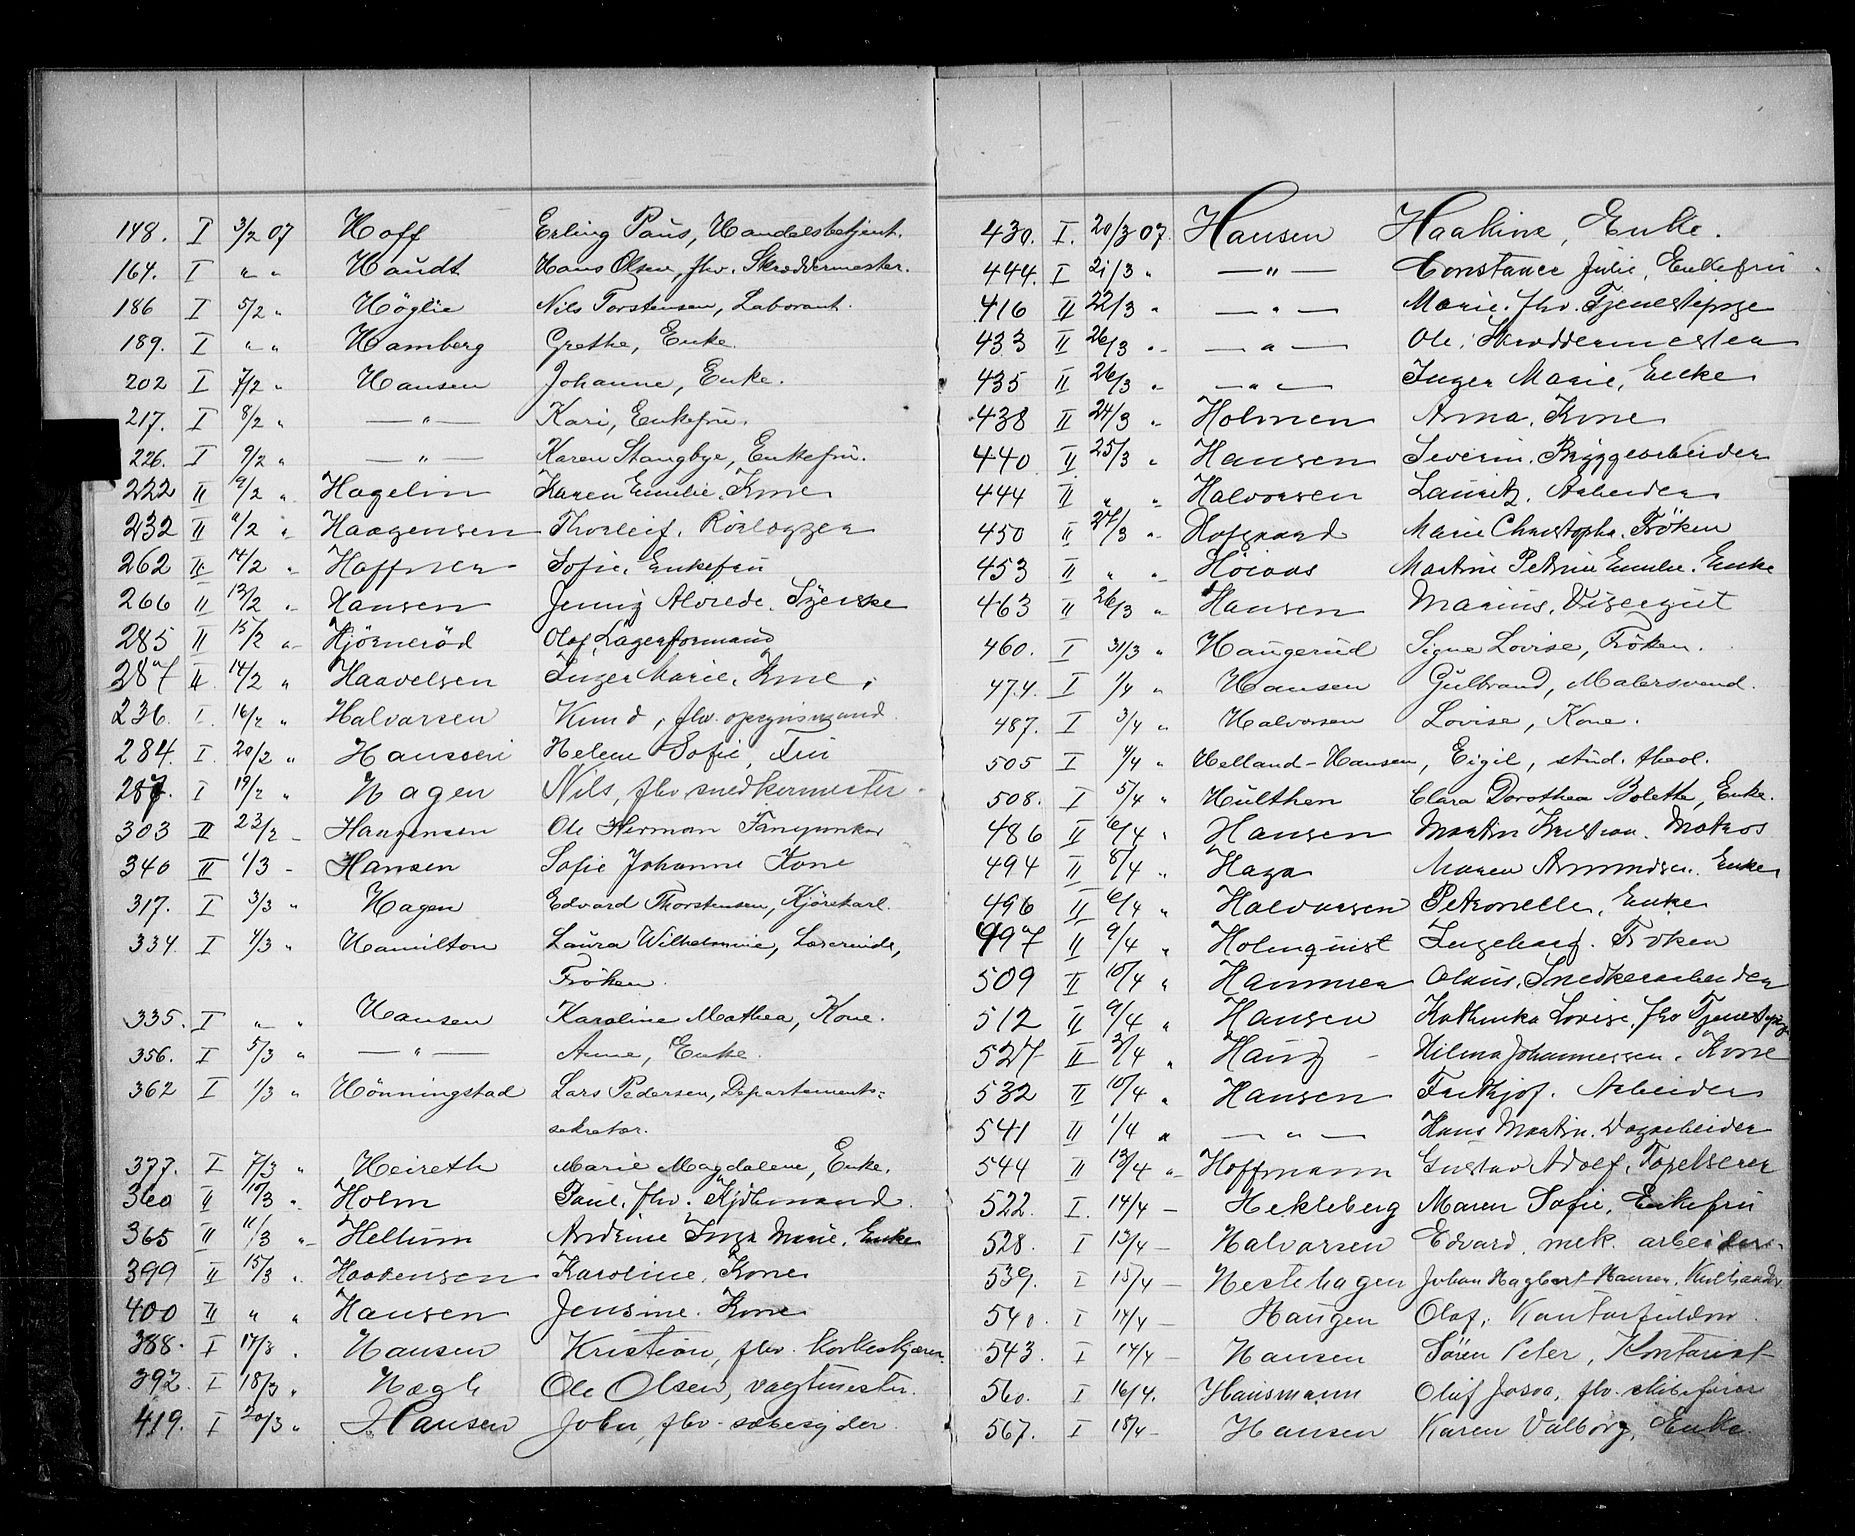 148. I 3/2 07 Hoff Erling Paus, Handelsbetjent.
164. I " " Haudt Hans Olsen, fhv. Skræddermester.
186 I 5/2 " Höglie Nils Torstensen, Laborant.
189. I " " Hamberg Grethe, Enke.
202 I 7/2 " Hansen Johanne, Enke.
217. I 8/2 " — " — Kari, Enkefru.
226. I 9/2 " — " — Karen Stangbye, Enkefru.
222 II 9/2 " Hagelin Karen Emilie, Kone
232 II 11/2 " Haagensen Thorleif, Rörlægger
262 II 14/2 " Haffner Sofie, Enkefru
266 II 13/2 " Hansen Jenny Alvede, Syerske
285 II 15/2 " Hjörneröd Olaf, Lagerformand
287 II. 14/2 " Haavelsen Inger Marie, Kone.
236. I. 16/2 " Halvorsen Knud, fhv.
284. I. 20/2 " Hanssen Helene Sofie, Fru
287. I 19/2 " Hagen Nils, fhv snedkermester.
303 II 23/2 – Haagensen Ole Herman
340 II 1/3 – Hansen Sofie Johanne Kone
317. I 3/3 " Hagen Edvard Thorstensen, Kjörekarl.
334. I 4/3 " Hamilton Laura Wilhelmine, Lærerinde,
Fröken.
335. I " " Hansen Karoline Mathea, Kone.
356. I 5/3 " — " — Anne, Enke.
362 I 1/3 " Hönningstad Lars Pedersen, Departements-
sekretær.
377. I 7/3 " Heireth Marie Magdalene, Enke.
360 II 10/3 " Holm Paul, fhv. Kjöbmand.
365 II 11/3 " Hellum Andrine Inga Marie, Enke
399 II 15/3 " Haakensen Karoline, Kone
400 II " " Hansen Jensine, Kone
388. I 17/3 " Hansen Kristian, fhv. korkeskjærer.
392. I 18/3 " Hægh Ole Olsen, vagtmester.
419. I 20/3 " Hansen John, fhv. sæbesyder
430. I. 20/3 07. Hansen Haakine, Enke.
444. I 21/3 " — " — Constance Julie, Enkefru.
416 II 22/3 " — " — Marie, fhv. Tjenestepige
433 II 26/3 " — " — Ole, Skræddermester
435 II 26/3 " — " — Inger Marie, Enke
438 II 24/3 " Holmen Anna, Kone
440 II 25/3 " Hansen Severin, Bryggearbeider
444 II " " Halvorsen Lauritz, Arbeider
450 II 27/3 " Hofgaard Marie Christopha, Fröken
453 II " " Höiaas Martine Petrine Emilie, Enke
463 II 26/3 " Hansen Marius, Visergut
460. I 31/3 " Haugerud Signe Lovise, Fröken.
474. I 1/4 " Hansen Gulbrand, Malersvend.
487. I 3/4 " Halvorsen Lovise, Kone.
505 I 4/4 " Helland-Hansen, Eigil, stud. theol.
508. I 5/4 " Hülthen Clara Dorothea Bolette, Enke.
486 II 6/4 " Hansen Martin Kristian, Matros
494 II 8/4 " Haga Maren Amundsen, Enke
496 II 6/4 " Halvorsen Petronelle, Enke
497 II 9/4 " Holmquist Ingeborg, Fröken
509 II 10/4 " Hammer Olaus, Snedkerarbeider
512 II 9/4 " Hansen Kathinka Lovise, fhv Tjenestepige
527 II 3/4 " Haug – Hilma Johannessen, Kone
532 II 10/4 " Hansen Frithjof, Arbeider
541 II 1/4 " — " — Hans Martin, Dagarbeider
544 II 13/4 " Hoffmann Gustav Adolf,
522. I. 14/4 – Hekleberg Maren Sofie, Enkefru
528. I 13/4 – Halvorsen Edvard, mek. arbeider.
539. I 15/4 – Hestehagen Johan Hagbart Hansen,
540. I 14/4 – Haugen Olaf,
543. I 14/4 – Hansen Sören Peter, Kontorist
560. I 16/4. Hausmann Oluf Josva, fhv. skibsfører
567. I 18/4 – Hansen Karen Valborg, Enke.